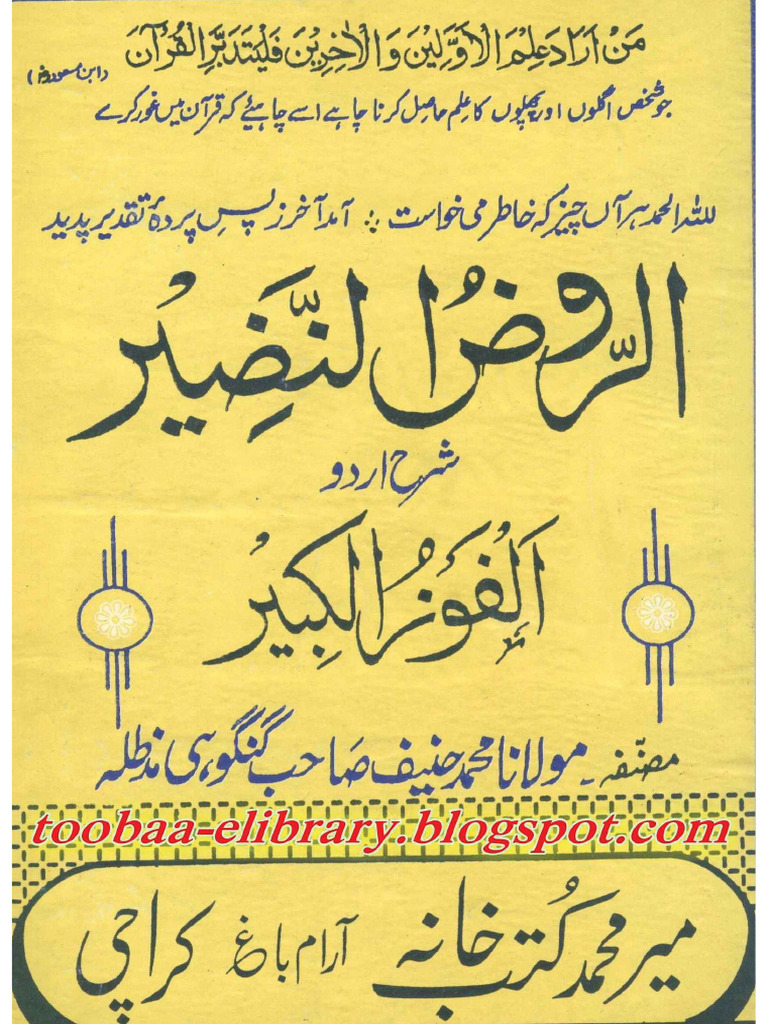 مَنْ اَرَادَ عِلْمَ الْاَوَّلِیْنَ وَالْاٰخِرِیْنَ فَلْیَتَدَبَّرِ الْقُرْآنَ (ابن مسعودؓ)
جو شخص اگلوں اور پچھلوں کا علم حاصل کرنا چاہے اسے چاہیئے کہ قرآن میں غور کرے
للہ الحمد ہر آں چیز کہ خاطر می خواست ؞ آمد آخر ز پسِ پردۂ تقدیر پدید
الرَّوضُ النَّضِیْر
شرح اردو
اَلْفَوْزُ الْکَبِیْر
مصنّفہ۔ مولانا محمد حنیف صاحب گنگوہی مدظلہ
toobaa-elibrary.blogspot.com
میر محمد کُتب خانہ آرام باغ کراچی